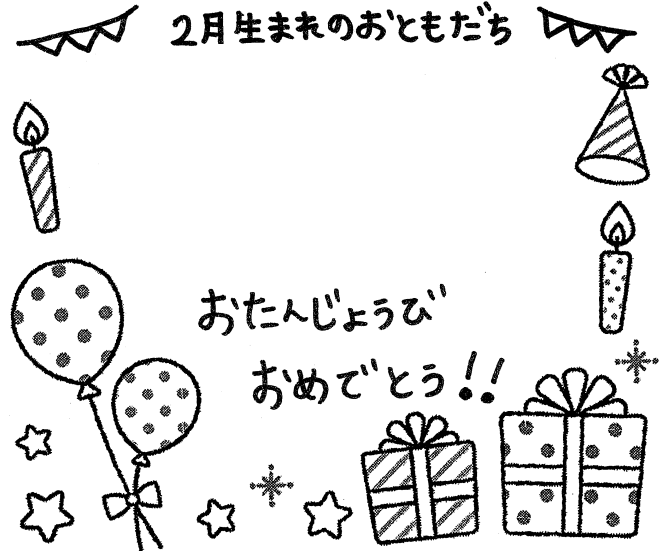 2月生まれのおともだち
おたんじょうび
おめでとう!!